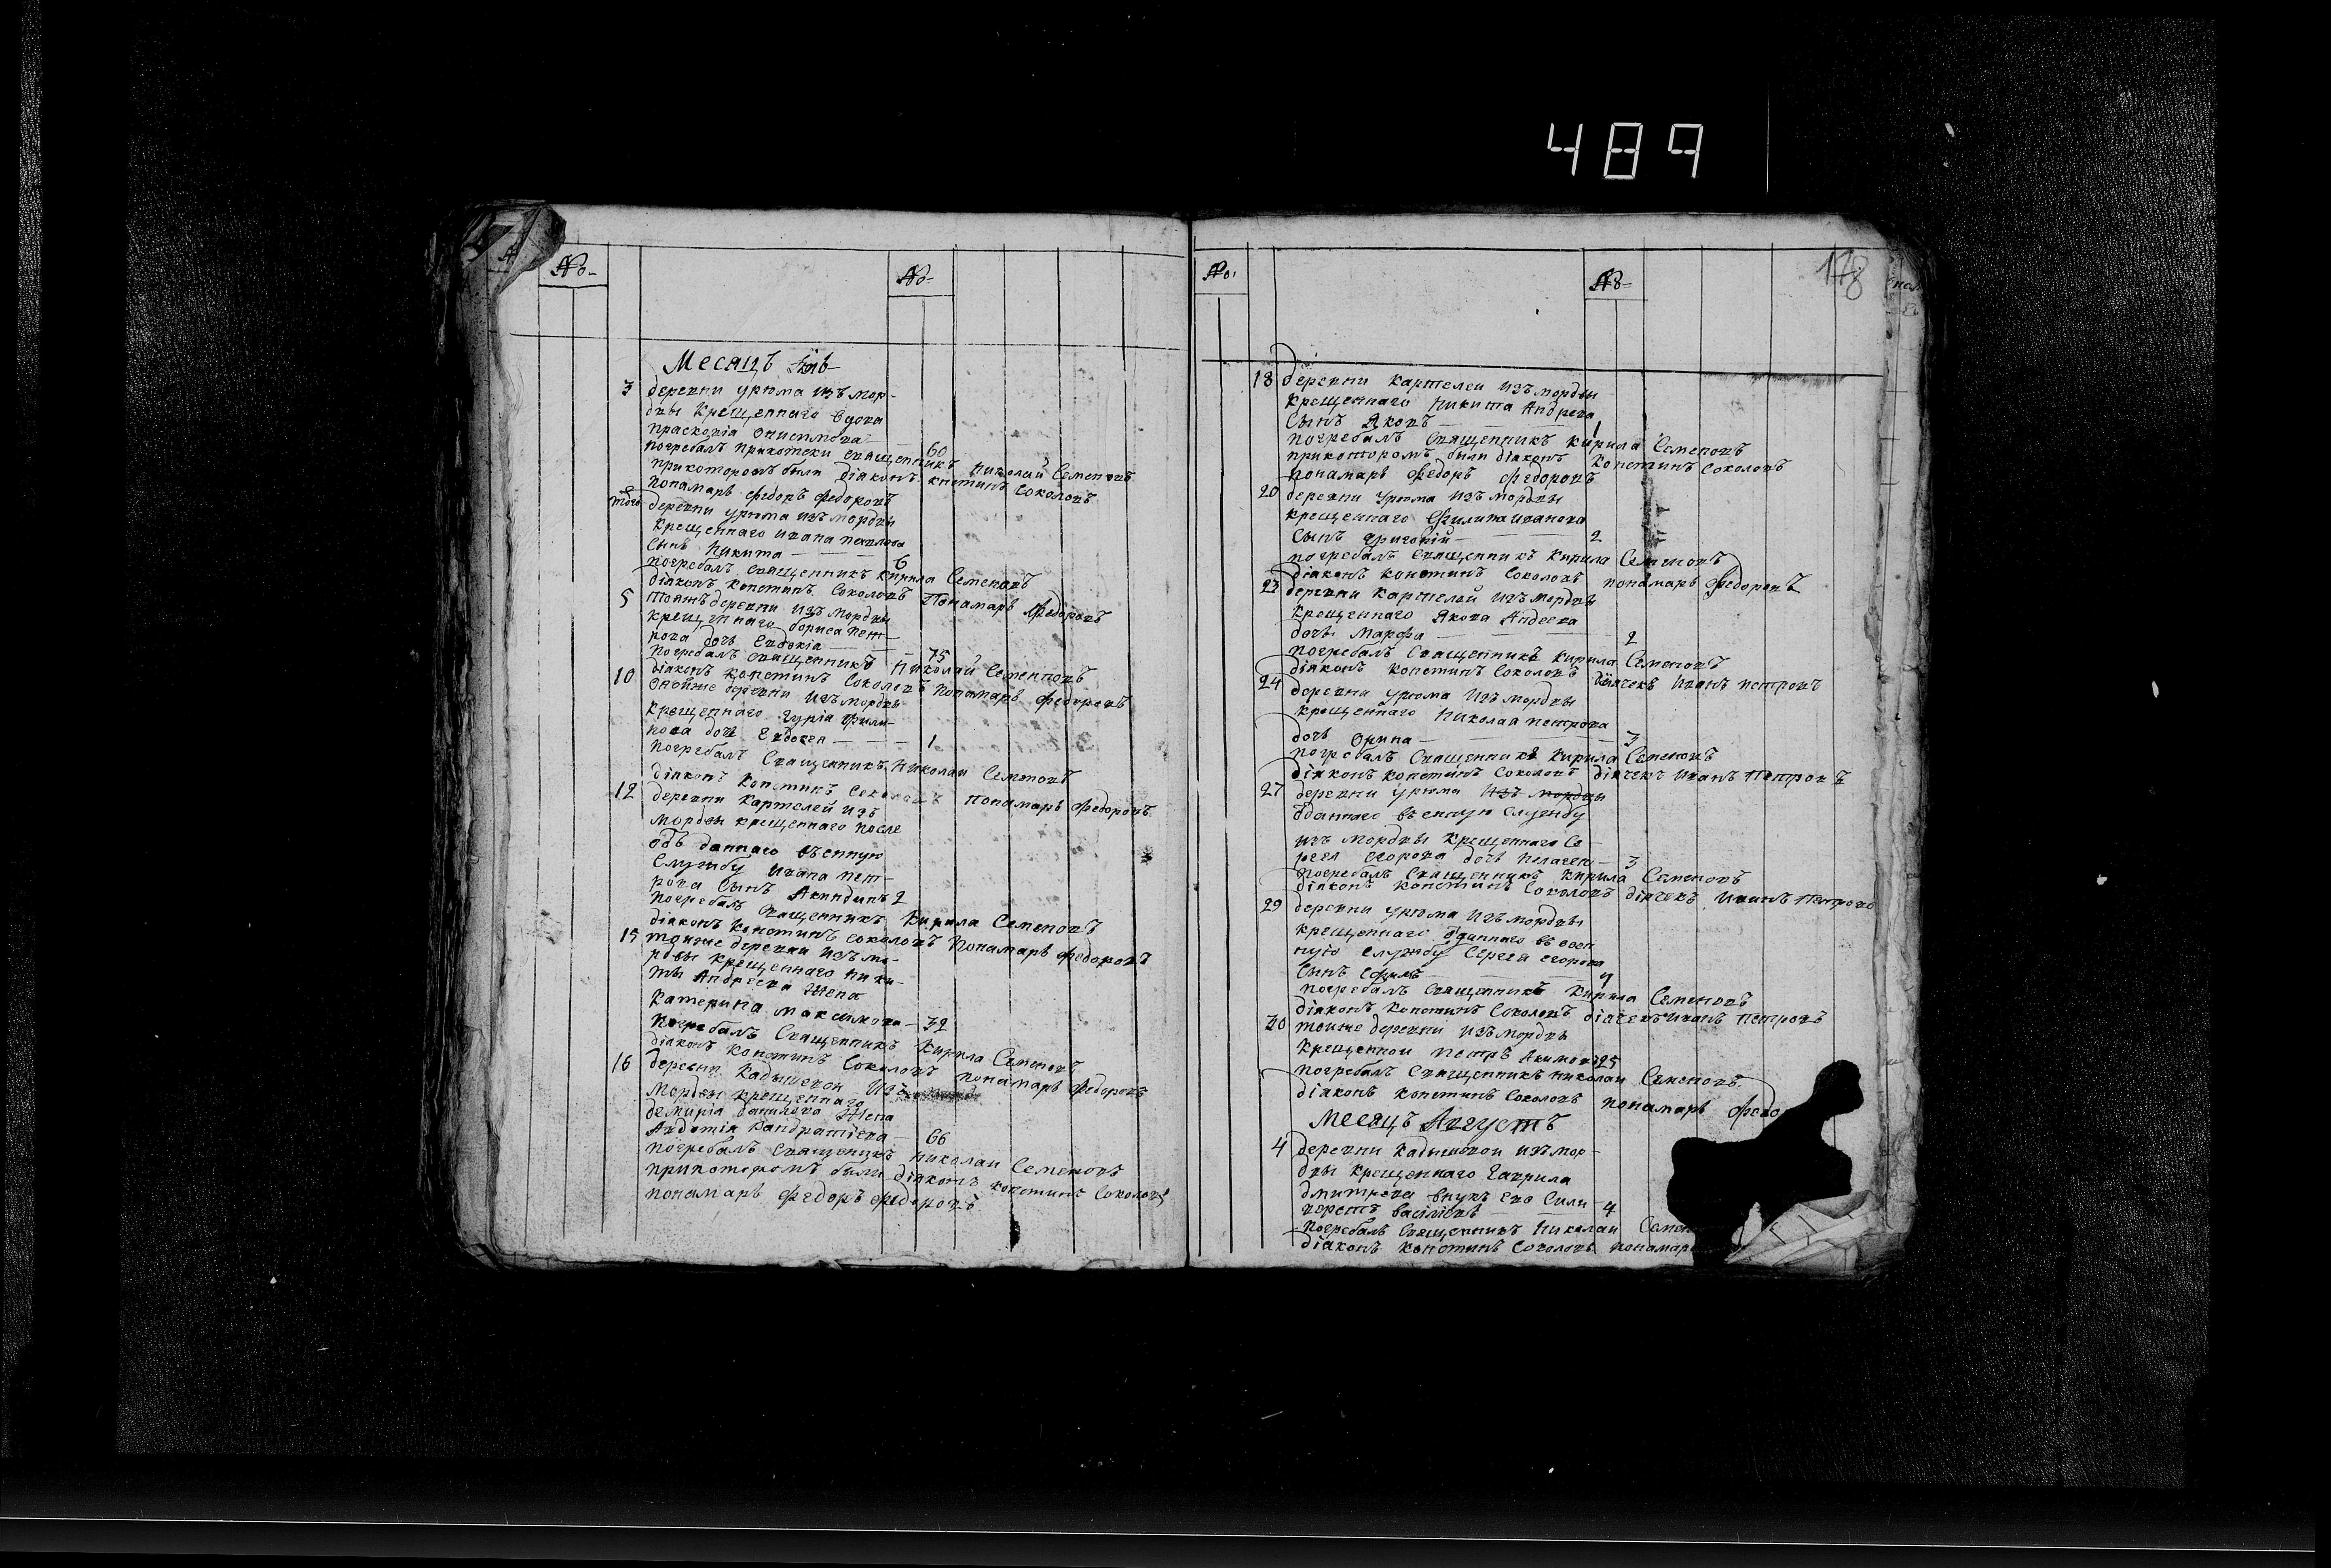 489
178
No
No
Месяцъ Iюль
3 деревни урюма изъ мор-
двы крещеннаго вдова
прасковiа Онисимова 60
погребалъ священникъ Николай Семеновъ
прикоторомъ были дiаконъ констинъ Соколовъ
понамарь Федоръ Федоровъ
того деревни урюма изъ мордвы
крещеннаго ивана павлова
сынъ Никита 6
погребалъ священникъ Кирила Семеновъ
дiаконъ констинъ Соколовъ Понамарь Федоровъ
5 тояжъ деревни изъ мордвы
крещеннаго бориса пет-
рова дочь Евдокiа 75
погребалъ священникъ Николай Семеновъ
дiаконъ констинъ Соколовъ понамарь Федоровъ
10 деревни изъ мордвы
крещеннаго гурiа фили-
пова дочь 1
погребалъ Священникъ Николаи Семеновъ
дiаконъ констинъ Соколовъ понамарь Федоровъ
12 деревни картелей изъ
мордвы крещеннаго после
отъ даннаго въенную
Службу ивана пет-
рова Сынъ Акиндинъ 2
погребалъ Священникъ Кирила Семеновъ
дiаконъ констинъ соколовъ понамарь Федоровъ
15 тоиже деревни изъ мо-
рдвы крещеннаго ники-
ты Андреева жена
катерина максимова 32
погребалъ Священникъ Кирила Семеновъ
дiаконъ констинъ Соколовъ понамарь Федоровъ
16 деревни Кадышевои изъ
мордвы крещеннаго
данилова жена
Авдотiя кандратiева 66
погребалъ Священикъ Николаи Семеновъ
прикоторомъ были дiаконъ констинъ Соколовъ
понамарь Федоръ Федоровъ
No
No
18 деревни картелеи изъ мордвы
крещеннаго никита Андреева
сынъ Яковъ 1
погребалъ Священникъ кирила Семеновъ
прикоторомъ были дiаконъ констинъ Соколовъ
понамарь Федоръ Федоровъ
20 деревни урюма изъ мордвы
крещеннаго Филипа иванова
сынъ григорiй 2
погребалъ Священникъ Кирила Семеновъ
дiаконъ констинъ Соколовъ понамарь Федоровъ
23 деревни картелей изъ мордвы
крещеннаго Якова Андеева
дочь Марфа 2
погребалъ Священникъ кирила Семеновъ
дiаконъ констинъ Соколовъ дiячекъ Иванъ петровъ
24 деревни урюма изъ мордвы
крещеннаго Николая петрова
дочь Орина 3
погребалъ Священникъ Кирила Семеновъ
дiаконъ констинъ Соколовъ дiячекъ Иванъ Петровъ
27 деревни урюма изъ мордвы
Отданнаго въенную службу
изъ мордвы крещеннаго Се-
ргея егорова дочь пелагея 3
погребалъ Священникъ Кирила Семеновъ
дiаконъ констинъ Соколовъ дiячекъ Иванъ Петровъ
29 деревни урюма изъ мордвы
крещеннаго Отданнаго въ воен
ную службу Сергея егорова
Сынъ
погребалъ Священникъ Кирила Семеновъ
дiаконъ констинъ Соколовъ дiячекъ Иванъ Петровъ
30 тоиже деревни изъ мордвы
крещенной петръ Акимовъ 25
погребалъ Священникъ Николаи Семеновъ
дiаконъ констинъ Соколовъ понамарь Федо
Месяцъ Августъ
4 деревни кадышевои изъ мор-
двы крещеннаго гаврила
дмитрева внукъ его Сили-
верстъ васiлiевъ 4
погребалъ Священникъ Николаи Семен
дiаконъ констинъ Соколовъ понамарь